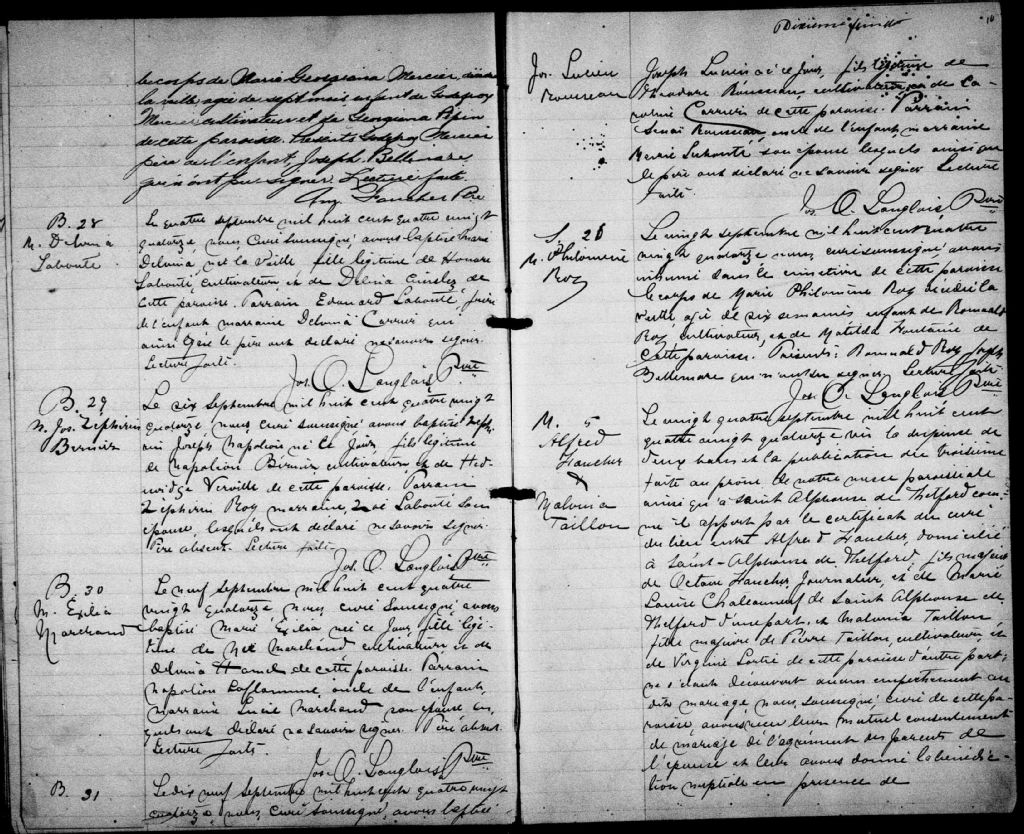 le corps de Marie Georgiana Mercier, décédé
la veille agée de sept mois enfant de Godefroy
Mercier cultivateur et de Georgiana Pépin
de cette paroisse. Présents Godefroy Mercier
père de l'enfant, Joseph Bellemare
qui n'ont pu signer. Lecture faite.
Faucher Ptre
B. 28
M. Delvina
Labonté
Le quatre septembre mil huit cent quatre vingt
quatorze nous curé soussigné avons baptisé Marie
Delvina, née la veille fille légitime de Honoré
Labonté, cultivateur, et de Delvina de
cette paroisse. Parrain Edouard Labonté, frère
de l'enfant marraine Delvina Carrier qui
ainsi que le père ont déclaré ne savoir signer.
Lecture faite.
Jos. O. Langlois Ptre
B. 29
M. Jos. Zepherin
Bernier
Le six septembre mil huit cent quatre vingt
quatorze, nous curé soussigné avons baptisé
Joseph Napoléon né ce jour, fils légitime
de Napoléon Bernier, cultivateur, et de Hed-
widge Verville de cette paroisse. Parrain
Zepherin Roy marraine, Zoé Labonté son
épouse, lesquels ont déclaré ne savoir signer.
Père absent. Lecture faite.
Jos. O. Langlois Ptre
B. 30
M. Exilia
Marchand
Le neuf septembre mil huit cent quatre
vingt quatorze nous curé soussigné avons
baptisé Marie Exilia née ce jour fille légi-
time de Marchand cultivateur et de
Delvina Hamel de cette paroisse. Parrain
Napoléon Laflamme, oncle de l'enfant,
marraine Marchand son épouse les-
quels ont déclaré ne savoir signer. Père absent.
Lecture faite.
Jos. O. Langlois Ptre
B. 31
Le dix neuf septembre mil huit cent quatre vingt
quatorze, nous, curé soussigné, avons baptisé
Dixième feuillet
10
Jos. Lucien
Rousseau
Joseph Lucien né ce jour, fils légitime de
Théodore Rousseau cultivateur et de Ca-
roline Carrier de cette paroisse. Parrain
Rousseau, oncle de l'enfant marraine
Marie Labonté son épouse lesquels ainsi que
le père ont déclaré ne savoir signer. Lecture
faite.
Jos. O. Langlois Ptre
S. 26
M. Philomène
Roy
Le vingt septembre mil huit cent quatre
vingt quatorze nous, curé soussigné, avons
inhumé dans le cimetière de cette paroisse
le corps de Marie Philomène Roy décédée la
veille agée de six semaines enfant de Romuald
Roy cultivateur, et de Matilda Fontaine de
cette paroisse. Présents: Romuald Roy Joseph
Bellemare qui n'ont su signer. Lecture faite.
Jos. O. Langlois Ptre
M. 5
Alfred
Faucher
&
Malvina
Taillon
Le vingt quatre septembre mil huit cent
quatre vingt quatorze vu la dispense de
deux bans et la publication du troisième
faite au prône de notre messe paroissiale
ainsi qu'à Saint Alphonse de Thetford com-
me il appert par le certificat du curé
du lieu entre Alfred Faucher, domicilié
à Saint-Alphonse de Thetford, fils majeur
de Octave Faucher Journalier, et de Marie
Louise Chateauneuf de Saint Alphonse de
Thetford d'une part, et Malvina Taillon
fille majeure de Pierre Taillon, cultivateur, et
de Virginie Lortie de cette paroisse d'autre part;
ne s'étant découvert aucun empêchement au
dit mariage nous, soussigné, curé de cette pa-
roisse, avons reçu leur mutuel consentement
de mariage de l'agrément des parents de
l'épouse et leur avons donné la bénédic-
tion nuptiale en présence de